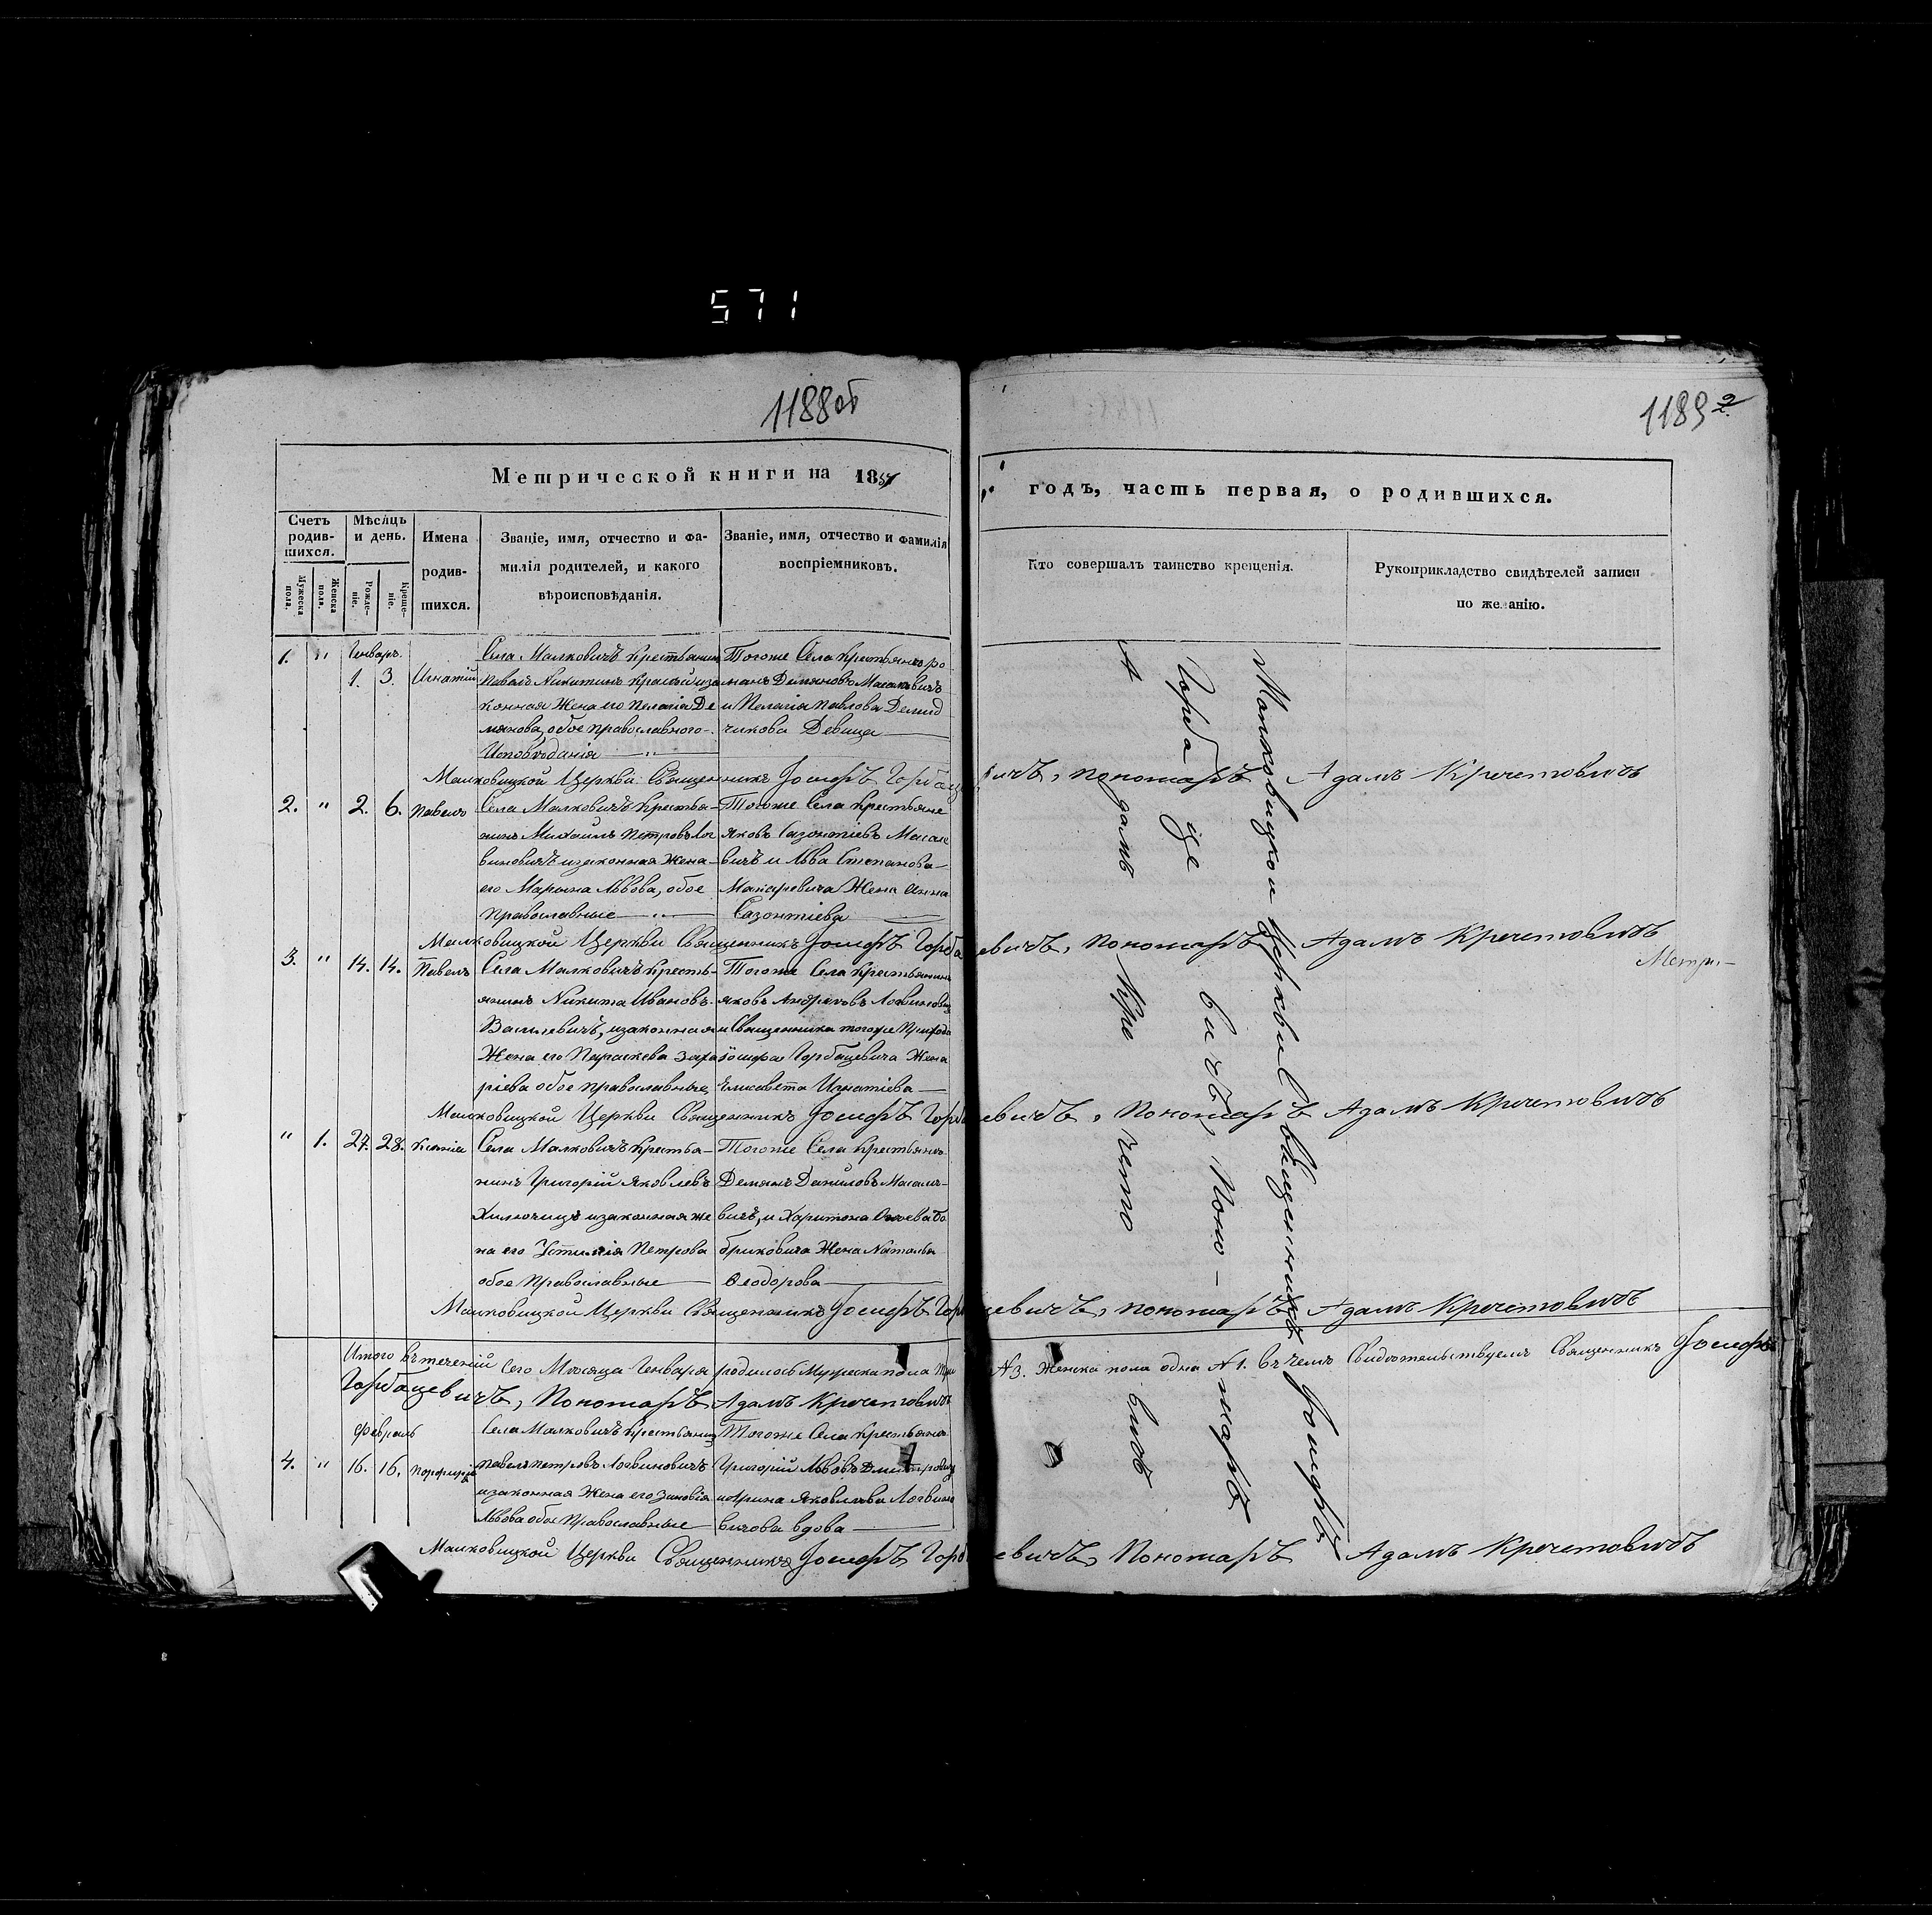 571
1188об
1189 2
Метрической книги на 1851
годъ, часть первая, о родившихся.
Счетъ родив-
шихся.
Мѣсяцъ
и день.
Имена
родив-
шихся.
Званіе, имя, отчество и фа-
милія родителей, и какого
вѣроисповѣданія.
Званіе, имя, отчество и фамилія
воспріемниковъ.
Кто совершалъ таинство крещенія.
Рукоприкладство свидѣтелей записи
по желанію.
Мужеска
пола.
Женска
пола.
Рожде-
ніе.
Креще-
ніе.
Генварь.
1. " 1. 3. Игнатій
Села Малковичъ Крестьянинъ
Павелъ Никитинъ иза
конная Жена его Пелагія Де
мянова, обое православного
Исповѣданія
Тогоже Села Крестьянъ Ро
манъ Демяновъ Масалевичъ
и Пелагія Павлова Демид
чикова Девица
Малковицкой Церкви Священникъ Іосифъ Горбацевичъ, пономаръ Адамъ Кречетовичъ
2. " 2. 6. Павелъ
Села Малковичъ Крестья-
нинъ Михаилъ Петровъ Лог
виновичъ изаконная Жена
его Марьяна Львова, обое
Православные
Тогоже Села Крестьяне
Яковъ Сазонтіевъ Масале
вичъ и Льва Степанова
Макаревича Жена Анна
Сазонтіева
Малковицкой Церкви Священникъ Іосифъ Горбацевичъ, Пономаръ Адамъ Кречетовичъ
Метри-
3. " 14. 14. Павелъ
Села Малковичъ Кресть-
янинъ Никита Ивановъ
Васильевичъ, изаконная
Жена его Параскева Заха
ріева обое православные
Тогоже Села Крестьянинъ
Яковъ Логвиновичъ
и Священника тогоже Прихода
Іосифа Горбацевича Жена
Елисавета Игнатіева
Малковицкой Церкви Священникъ Іосифъ Горбацевичъ, Пономаръ Адамъ Кречетовичъ
" 1. 27. 28. Ксенія
Села Малковичъ Крестья-
нинъ Григорій Яковлевъ
изаконная же
на его Устинія Петрова
обое Православные
Тогоже Села Крестьянъ
Демянъ Даниловъ Масале-
вичъ, и Харитона Бо
бриковича Жена Наталья
Ѳеодорова
Малковицкой Церкви Священникъ Іосифъ Горбацевичъ, пономаръ Адамъ Кречетовичъ
Итого втеченіи Сего Мѣсяца Генваря родилось Мужеска пола три №3. Женска пола одна №1. Въ чемъ Свидѣтельствуемъ Священникъ Іосифъ
Горбацевичъ, Пономаръ Адамъ Кречетовичъ
Февраль
4. " 16. 16. Порфирій
Села Малковичъ Крестьянинъ
Павелъ Петровъ Логвиновичъ
изаконная Жена его Зиновія
Львова обое Православные
Тогоже Села Крестьяне
Григорій Львовъ Дмитровичъ
и Ирина Яковлева Логвино
вичова вдова
Малковицкой Церкви Священникъ Іосифъ Горбацевичъ, Пономаръ Адамъ Кречетовичъ
Малковицкой Церкви Священникъ Іосифъ
Горбацевичъ, Поно-маръ
Адамъ Кречетовичъ